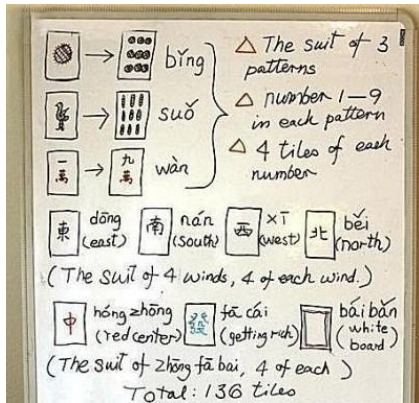 → bǐng
△ The suit of 3
patterns
→ suǒ
△ number 1—9
in each pattern
△ 4 tiles of each
number
一萬 → 九萬 wàn
東 dōng (east) 南 nán (south) 西 xī (west) 北 běi (north)
(The suit of 4 winds, 4 of each wind.)
中 hóng zhōng (red center) 發 fā cái (getting rich) bái bǎn (white board)
(The suit of zhōng fā bai, 4 of each)
Total: 136 tiles